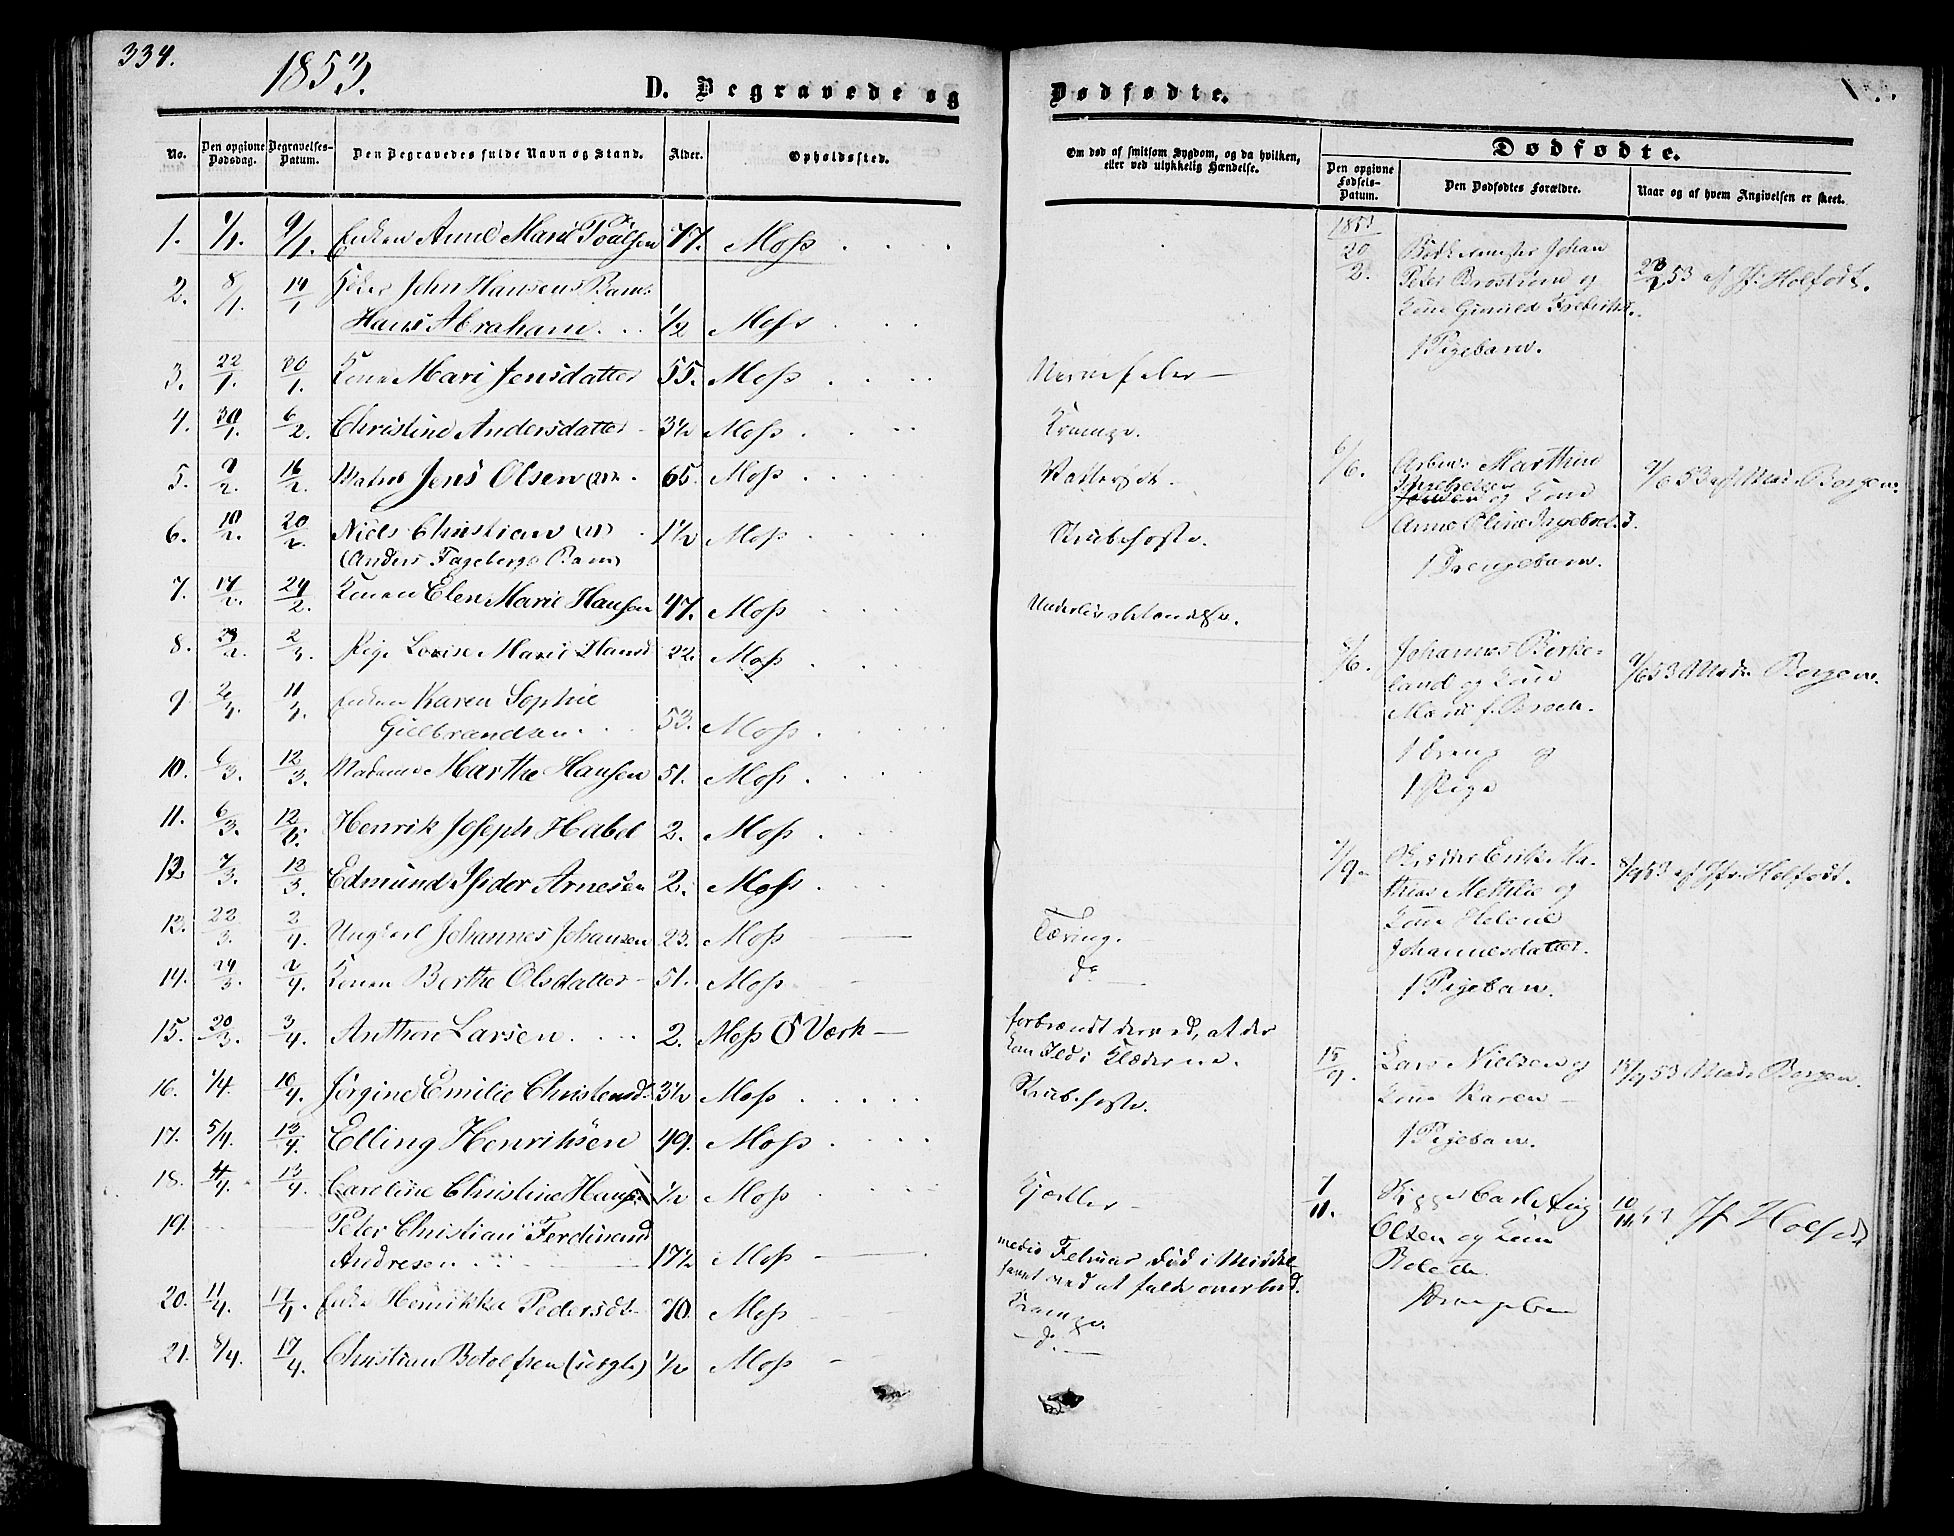 334.
1853.
D. Begravede og
Dødfødte.
No.
Den opgivne Dødsdag.
Begravelses-Datum.
Den Begravedes fulde Navn og Stand.
Alder.
Opholdssted.
Om død af smitsom Sygdom, og da hvilken, eller ved ulykkelig Hændelse.
Dødfødte.
Den opgivne Fødsels-Datum.
Den Dødfødtes Forældre.
Naar og af hvem Angivelsen er skeet.
1. 9/1. Enken Anne Marie 77. Moss
2. 8/1. 14/1 John Hansens Barn
Hans Abraham 1/2 Moss
3. 22/1. 30/1. Konen Mari Jensdatter 55. Moss
4. 30/1. 6/2. Christine Andersdatter 3 1/2 Moss
5. 9/2. 16/2. Jens Olsen 65. Moss
6. 10/2. 20/2. Niels Christian 1 1/2 Moss
(Anders Fagebergs Barn)
7. 17/2. 24/2. Konen Elen Marie Hansen 47. Moss
8. 2/3. Pige Lovise Marie Hansd 22. Moss
9 11/3. Enken Karen Sophie
Gulbrandsen 53. Moss
10. 6/3. 12/3. Madame Marthe Hansen 51. Moss
11. 6/3. 12/3. Henrik Joseph Habel 2. Moss
12 7/3. 12/3. Edmund Isidor Arnesen 2. Moss
13. 22/3. 2/4 Ungkarl Johannes Johansen 23. Moss
14. 24/3. 2/4 Konen Berthe Olsdatter 51. Moss
15. 20/3. 3/4. Anthon Larsen 2. Moss Værk
16. 1/4 10/4. Jørgine Emilie Christensd 3 1/2 Moss
17. 5/4. 13/4. Elling Henriksen 49. Moss
18. 4/4. 13/4 Caroline Christine Hansen 1/2 Moss
19. Peter Christian Ferdinand
Andresen 17 1/2 Moss
20. 11/4. 17/4. Enke Henrikka Pedersdt 70. Moss
21. 8/4. 17/4. Christian Botolfsen (uægte) 1/2 Moss
Nervefeber
Krampe.
Vattersot.
Strubehoste.
Underlivsbetændelse.
Tæring.
do
forbrændt derved, at der
kom Ild i Klæderne.
Strubehoste.
Kjertler
medio Februar død i Middel
havet ved at falde overbord.
Krampe.
do.
1853
20/2. Bødkermester Johan
Peter Broström og
Kone Gunild
1 Pigebarn.
53 af Jf. Holfødt.
6/6. Arbm. Marthin
og Kone
Anne Oline Ingebretsd.
1 Drengebarn.
9/6 53 af Mad. Borgen.
/6. Johannes Birke-
land og Kone
Marie f. Broch.
1 Dreng og
1 Pige
9/6 53 Mad. Borgen.
/9. Erik Ma-
thias Mettelie og
Kone Helene
Johannesdatter.
1 Pigebarn.
8/9 53 af Jfr. Holfødt.
15/9. Lars Nielsen og
Kone Karen
1 Pigebarn.
53 Mad. Borgen.
1/11. Carl Aug
Olsen og Kone
1 Drengebarn
10/11. 53 Jf Holfødt